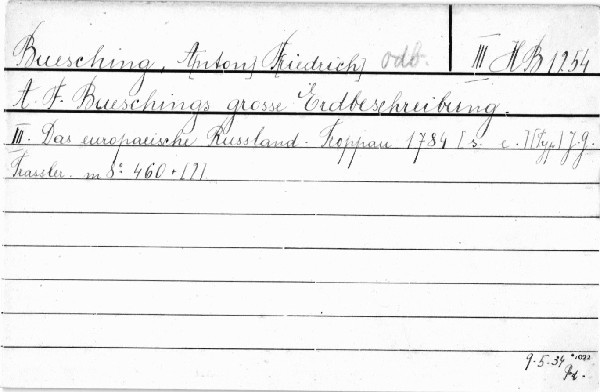 Buesching, Anton] Friedrich] odb. III HB 1254
A. F. Bueschings grosse Erdbeschreibung.
III. Das europaeische Russland. Troppau 1784 [s. c.] [Typ.] J. G.
Trassler. m 8° 460 + [2]
9.5.34